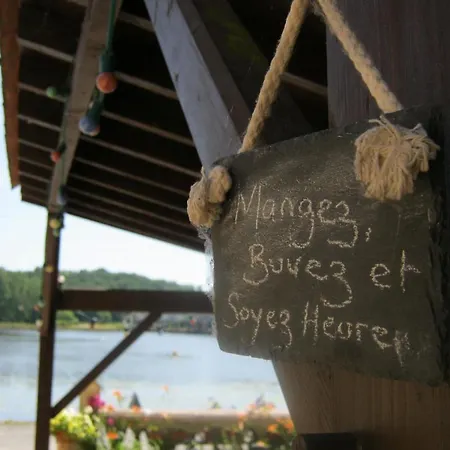 Mangez,
Buvez et
Soyez Heureux